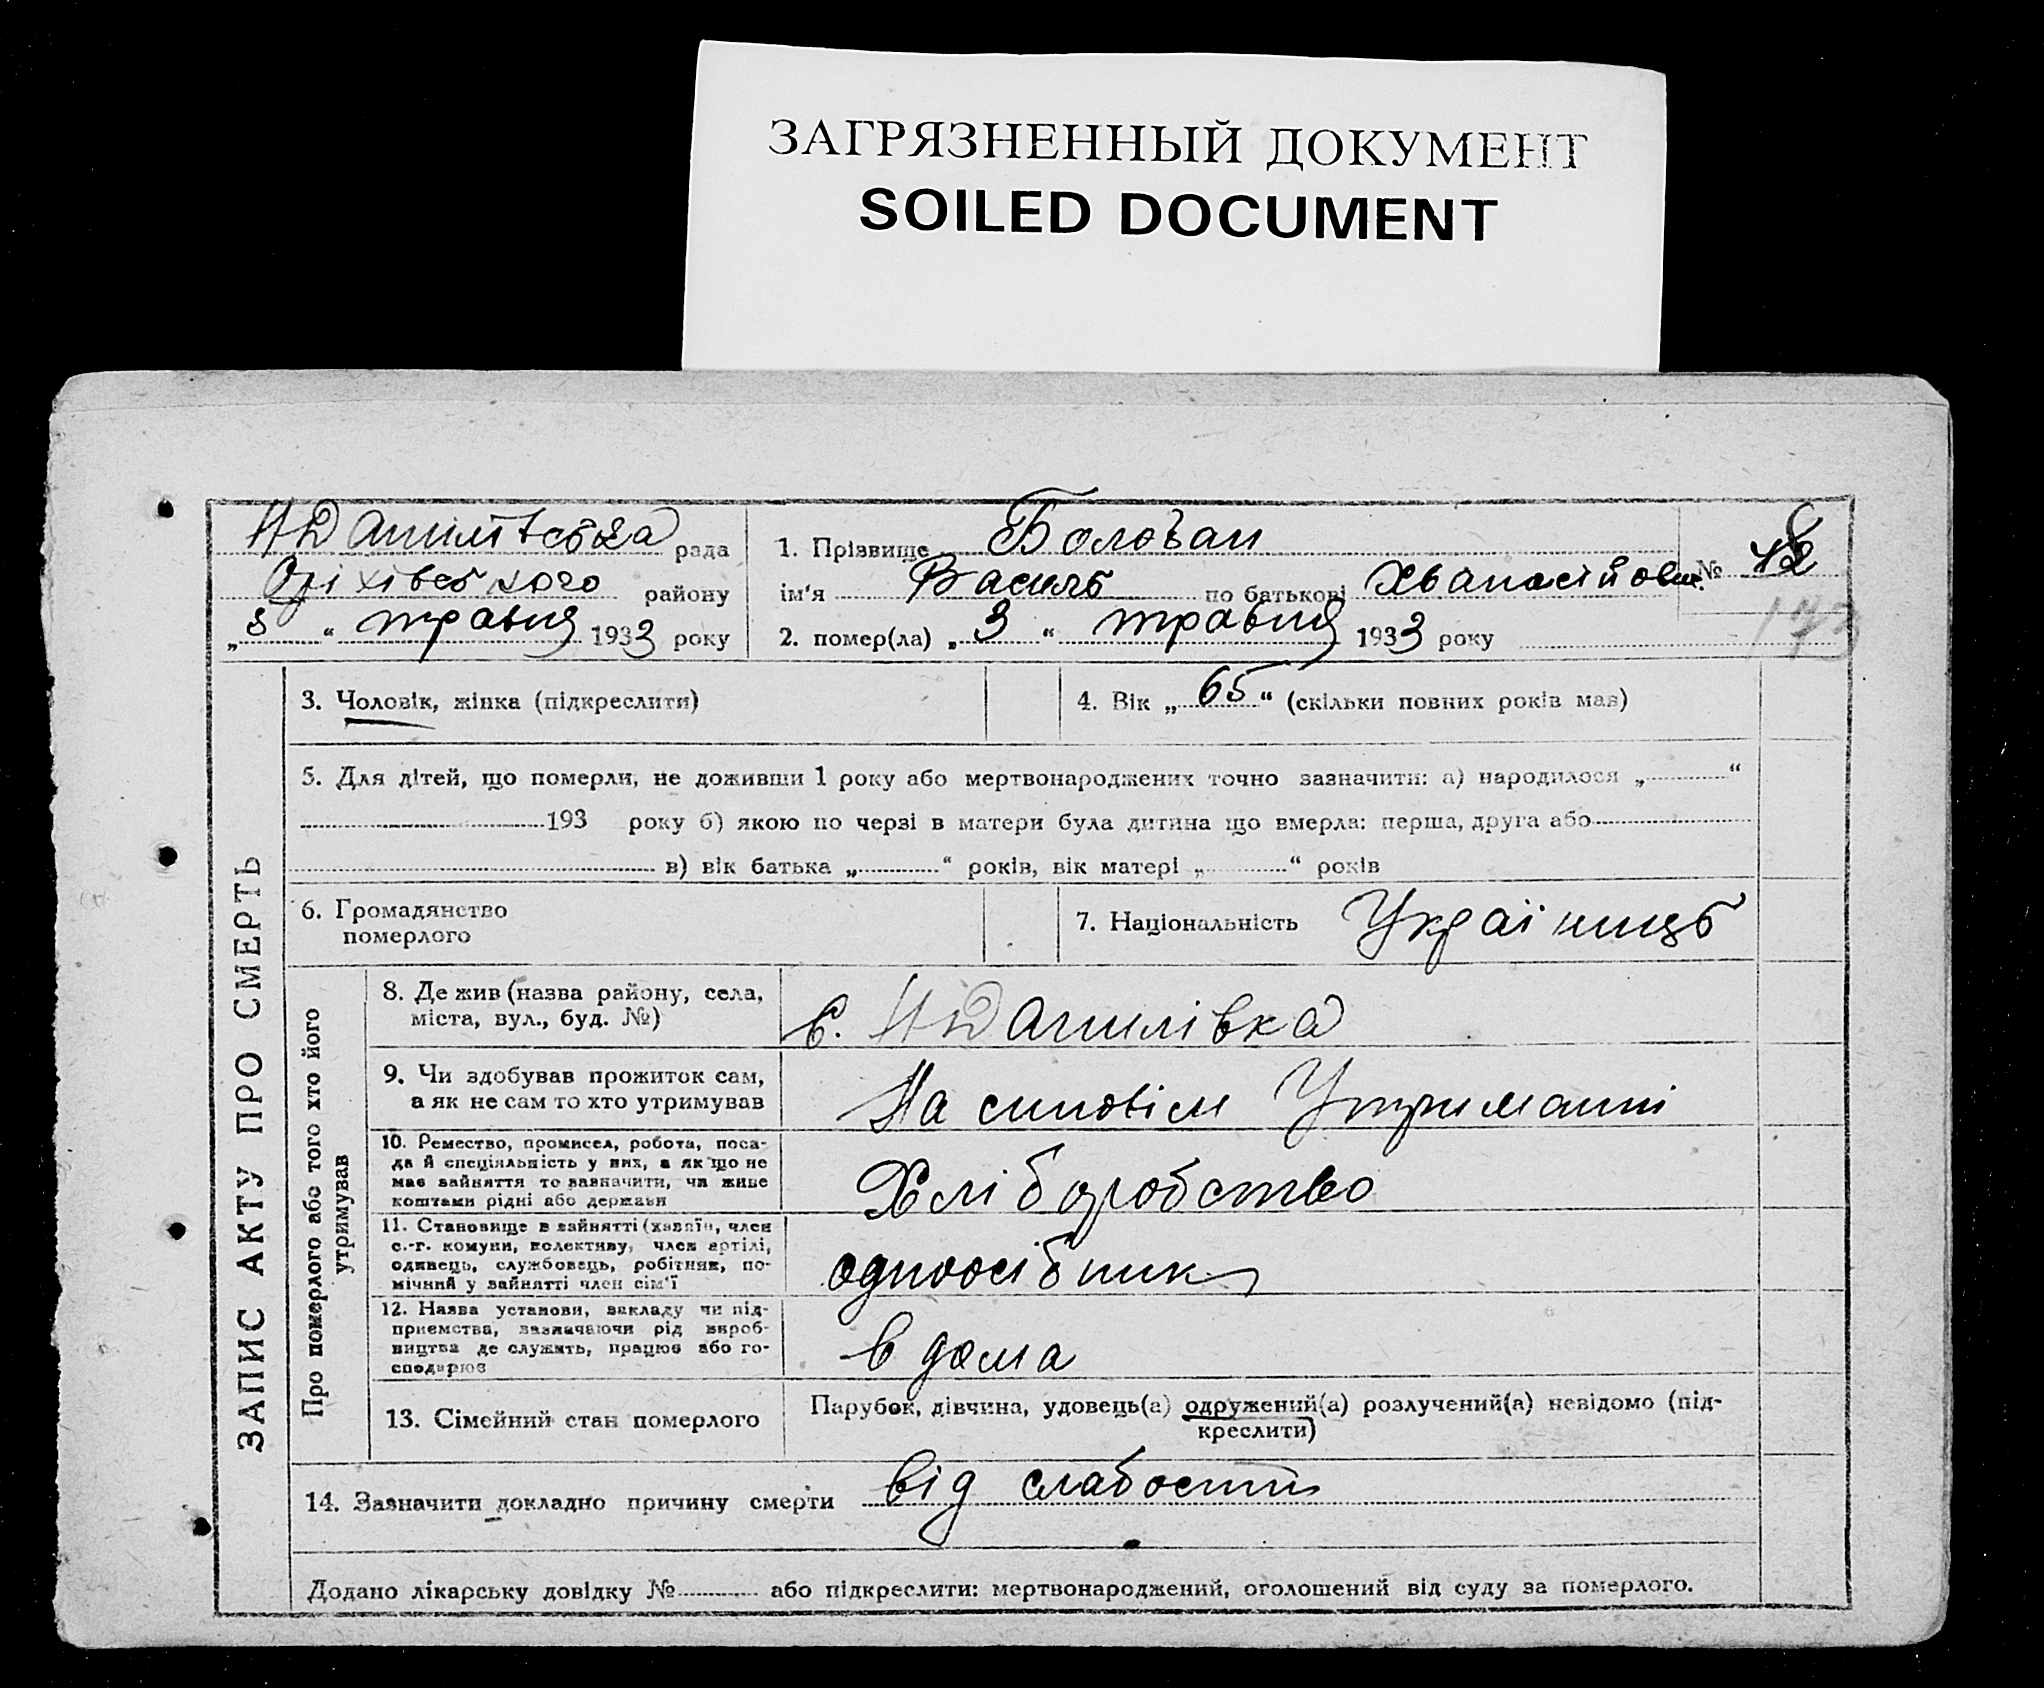 ЗАГРЯЗНЕННЫЙ ДОКУМЕНТ
SOILED DOCUMENT
рада
Оріхівського району
"3" травня 1933 року
1. Прізвище Болобан
ім'я Василь по батькові Хванасійович
№
2. помер(ла) "3" травня 1933 року
ЗАПИС АКТУ ПРО СМЕРТЬ
3. Чоловік, жінка (підкреслити)
4. Вік "65" (скільки повних років мав)
5. Для дітей, що померли, не доживши 1 року або мертвонароджених точно зазначити: а) народилося „ “
193 року б) якою по черзі в матери була дитина що вмерла: перша, друга або
в) вік батька „ “ років, вік матері „ “ років
6. Громадянство
померлого
7. Національність Українць
Про померлого або того хто його
утримував
8. Де жив (назва району, села,
міста, вул., буд. №)
с. НДанилівка
9. Чи здобував прожиток сам,
а як не сам то хто утримував
На синовім Утриманні
10. Ремество, промисел, робота, поса-
да й спеціяльність у них, а як що не
має зайняття то зазначити, чи живе
коштами рідні або держави
Хліборобство
11. Становище в зайнятті (хазяїн, член
с.-г. комуни, колективу, член артілі,
одинець, службовець, робітник, по-
мічний у зайнятті член сім'ї
одноосібник
12. Назва установи, закладу чи під-
приемства, зазначаючи рід вироб-
ництва де служить, працює або го-
сподарює
в дома
13. Сімейний стан померлого
Парубок, дівчина, удовець(а) одружений(а) розлучений(а) невідомо (під-
креслити)
14. Зазначити докладно причину смерти від слабости
Додано лікарську довідку № або підкреслити: мертвонароджений, оголошений від суду за померлого.